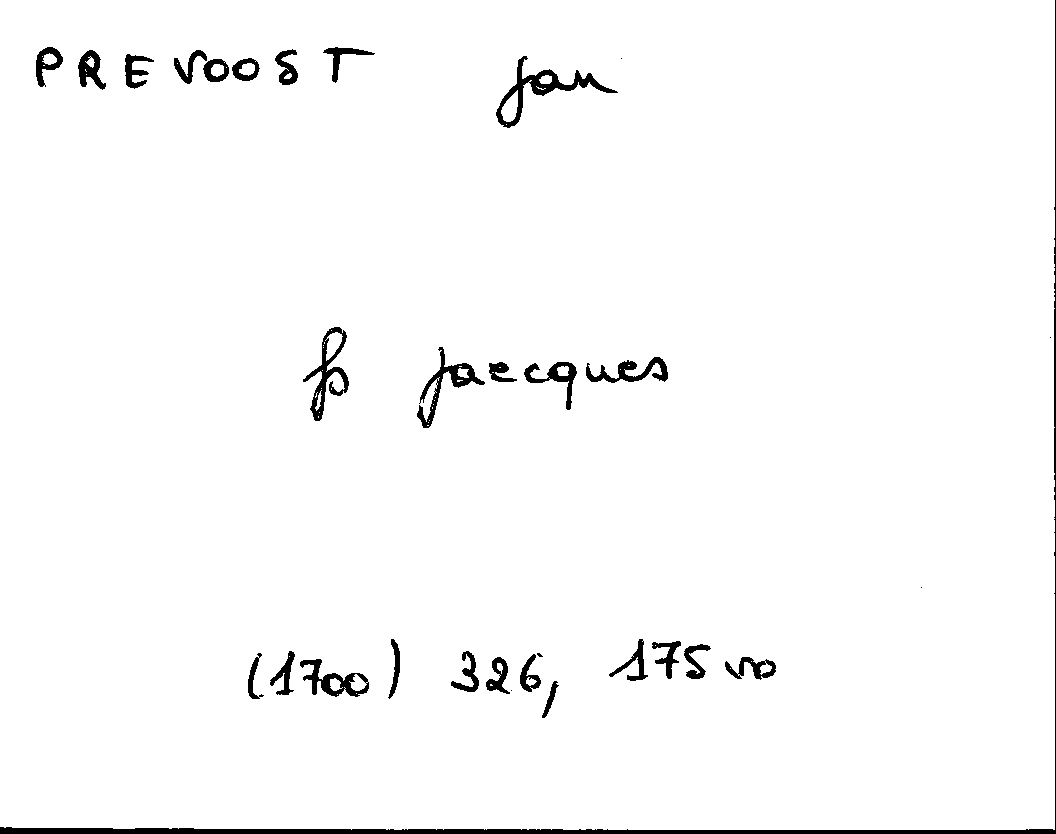 PREVOOST Jan
fs Jaecques
(1700) 326, 175 vo